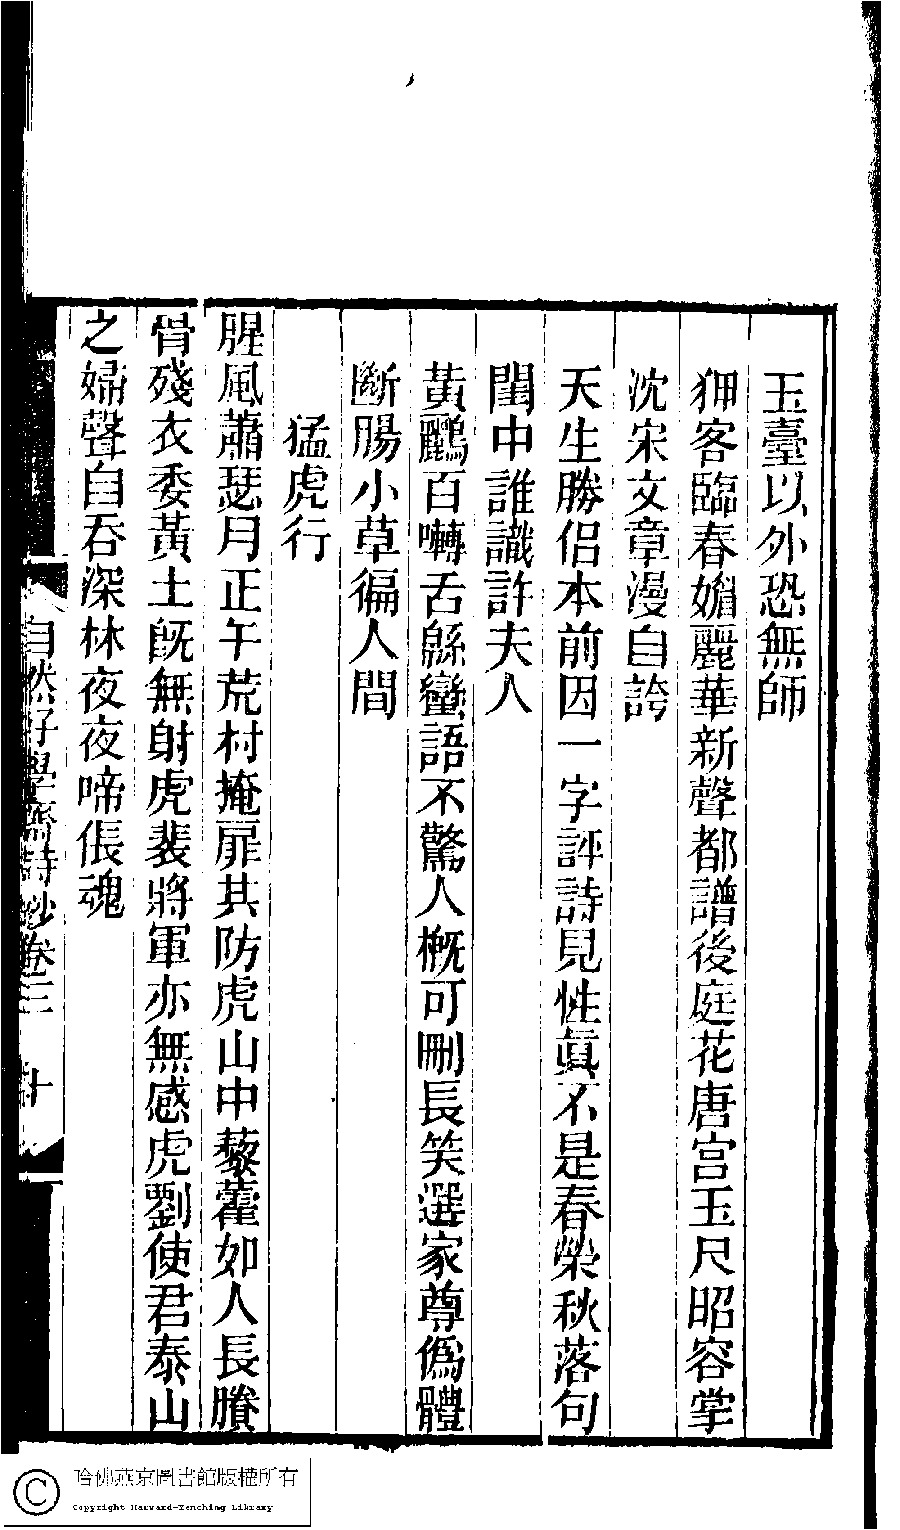 玉臺以外恐無師
狎客臨春媚麗華新聲都譜後庭花唐宮玉尺昭容掌
沈宋文章漫自誇
天生勝侶本前因一字評詩見性眞不是春榮秋落句
閨中誰識許夫人
黃鸝百囀舌緜蠻語不驚人槪可刪長笑選家尊僞體
斷腸小草徧人間
猛虎行
腥風蕭瑟月正午荒村掩扉共防虎山中藜藿如人長賸
骨殘衣委黃土旣無射虎裴將軍亦無感虎劉使君泰山
之婦聲自吞深林夜夜啼倀魂
自然好學齋詩鈔卷三 十
哈佛燕京圖書館版權所有
Copyright Harvard-Yenching Library